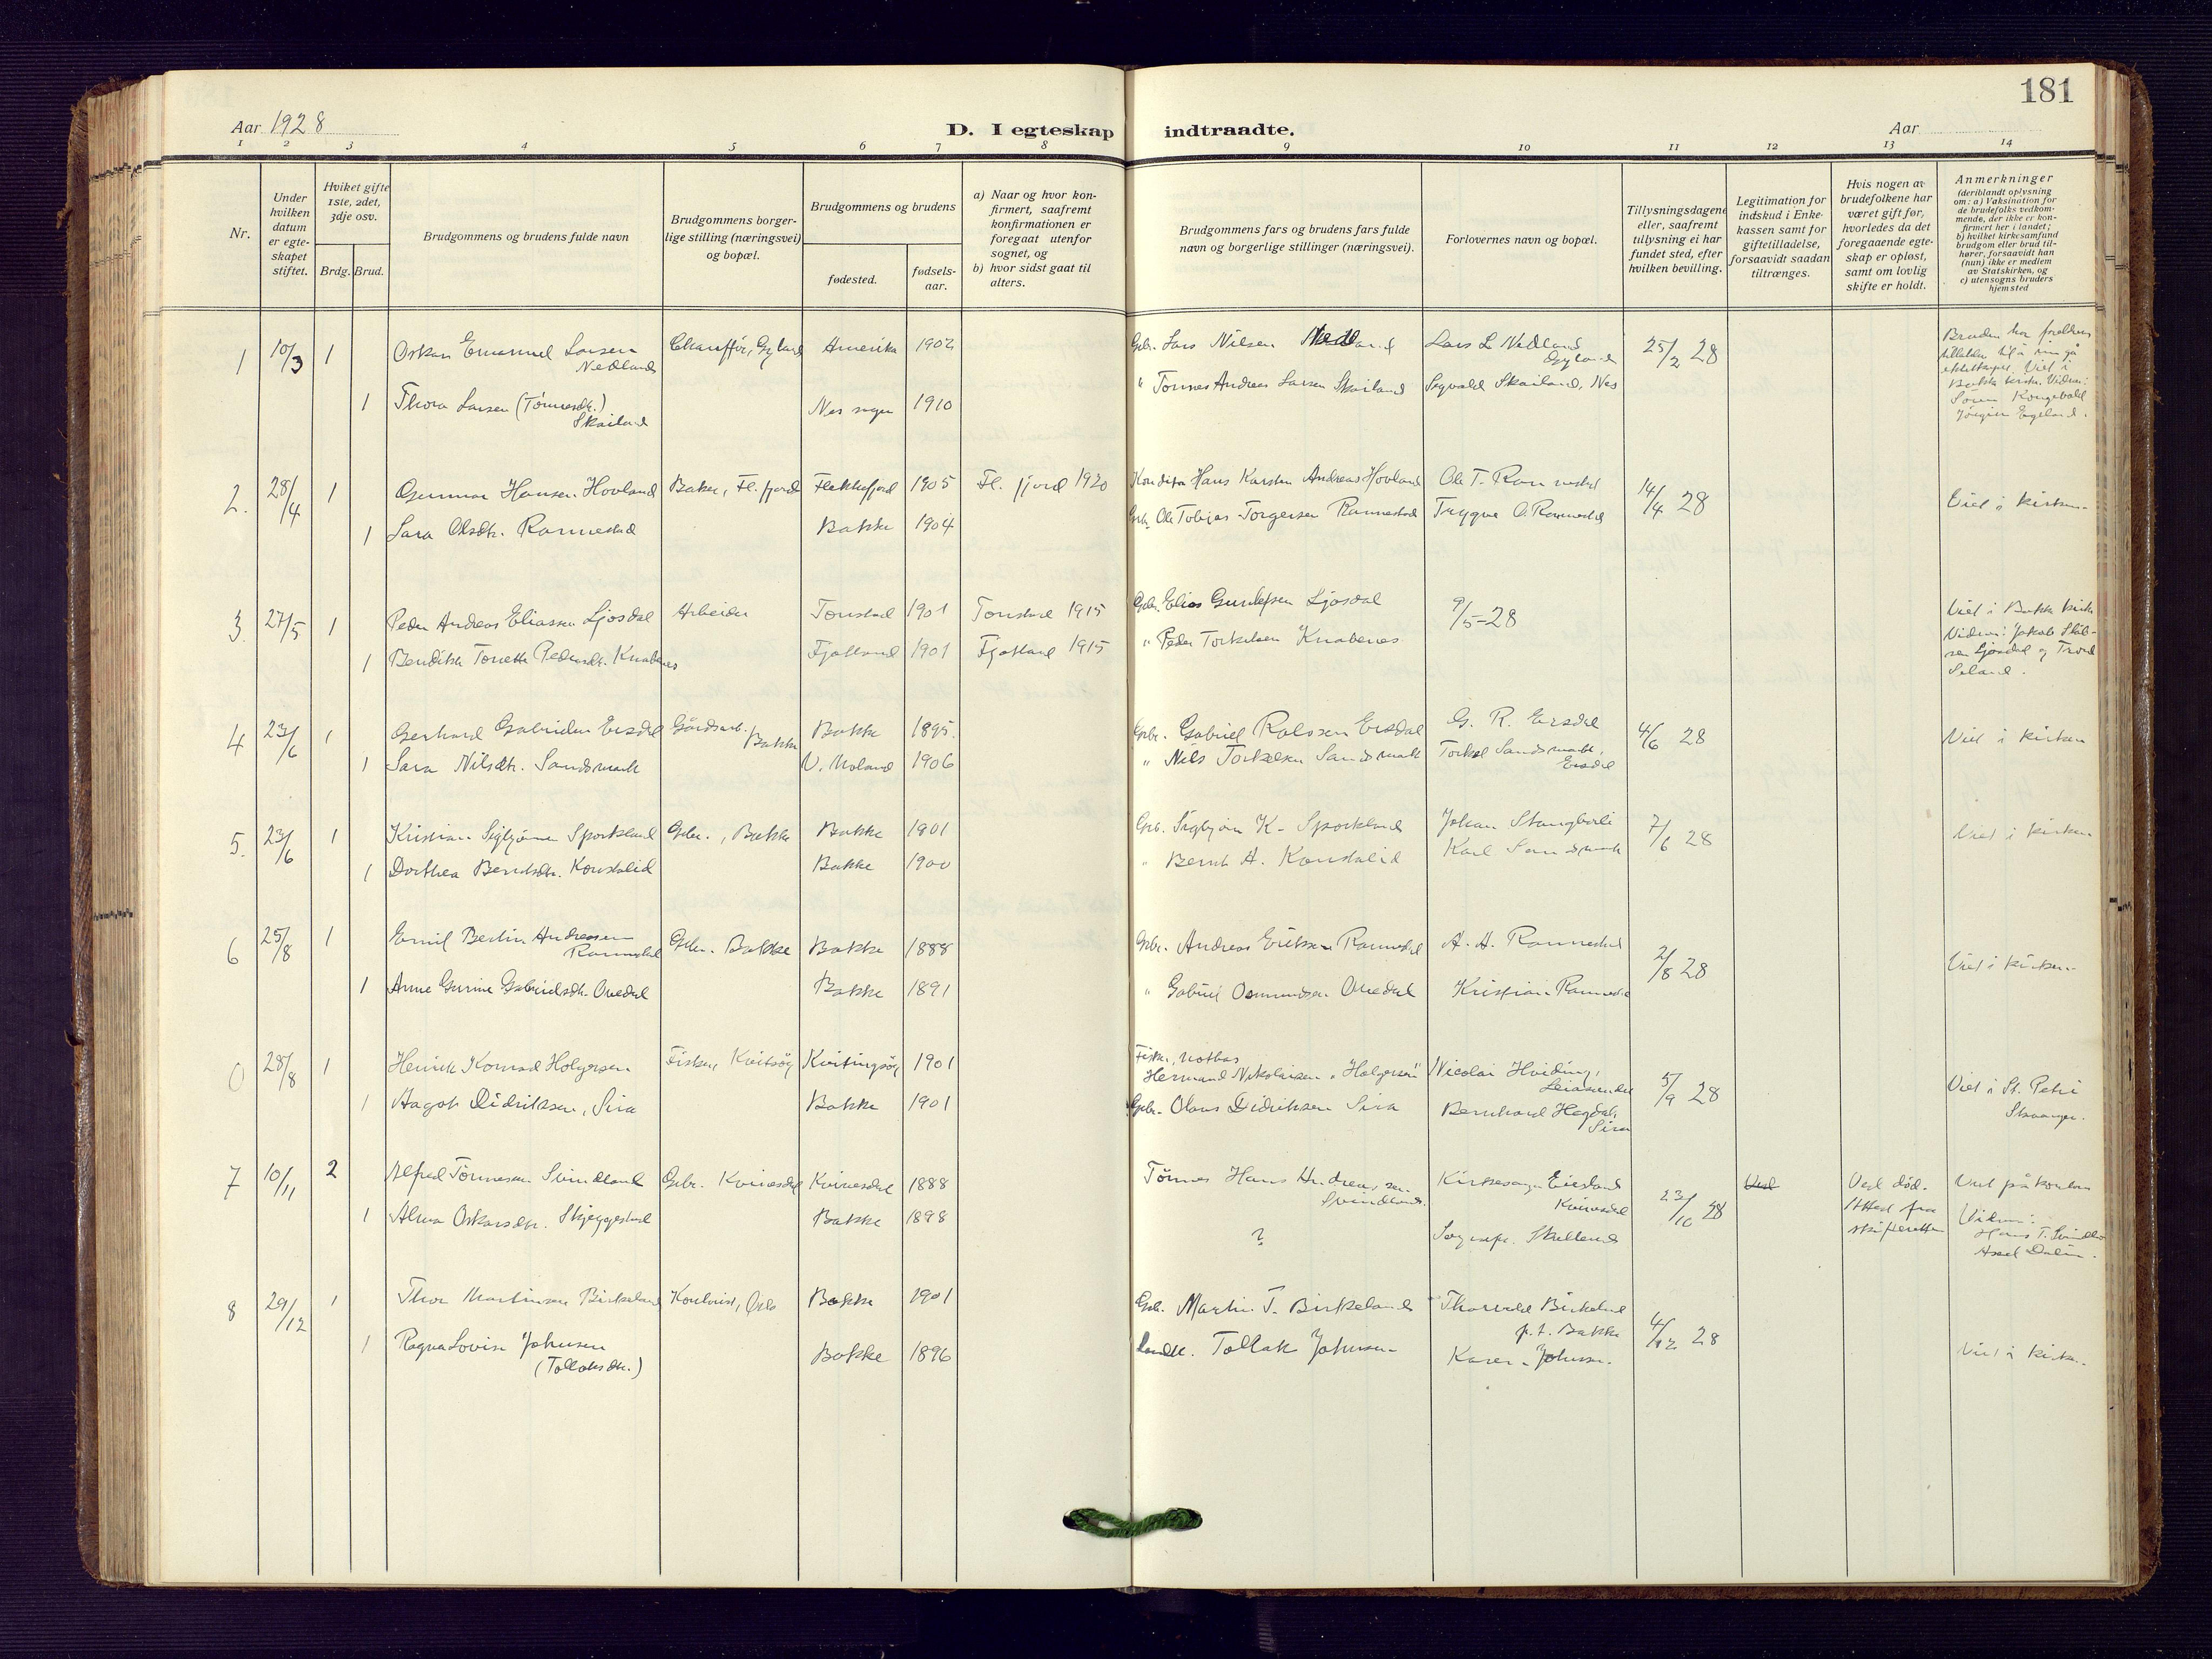 181
Aar 1928
D. I egteskap indtraadte.
Aar
1 2 3 4 5 6 7 8 9 10 11 12 13 14
Nr.
Under hvilken datum er egteskapet stiftet.
Hvilket gifte 1ste, 2det, 3dje osv.
Brdg. Brud.
Brudgommens og brudens fulde navn
Brudgommens borgerlige stilling (næringsvei) og bopæl.
Brudgommens og brudens
fødested.
fødselsaar.
a) Naar og hvor konfirmert, saafremt konfirmationen er foregaat utenfor sognet, og
b) hvor sidst gaat til alters.
Brudgommens fars og brudens fars fulde navn og borgerlige stillinger (næringsvei).
Forlovernes navn og bopæl.
Tillysningsdagene eller, saafremt tillysning ei har fundet sted, efter hvilken bevilling.
Legitimation for indskud i Enkekassen samt for giftetilladelse, forsaavidt saadan tiltrænges.
Hvis nogen av brudefolkene har været gift før, hvorledes da det foregaaende egteskap er opløst, samt om lovlig skifte er holdt.
Anmerkninger
(deriblandt oplysning om: a) Vaksination for de brudefolks vedkommende, der ikke er konfirmert her i landet; b) hvilket kirkesamfund brudgom eller brud tilhører, forsaavidt han (hun) ikke er medlem av Statskirken, og c) utensogns bruders hjemsted
1 10/3 1 Oskar Emanuel Larsen Nedland Chauffør, Gyland Amerika 1902 Gbr. Lars Nilsen Nedland Lars L. Nedland Gyland 25/2 28
1 Thora Larsen (Tønnesdtr.) Skailand Nes sogn 1910 " Tønnes Andreas Larsen Skailand Sigvald Skailand, Nes
Bruden har foreldres tillatelse til å inngå ekteskapet. Viet i Bakke kirke. Vidner: Søren Kongevold Jörgen Egeland.
2. 28/4 1 Gunnar Hansen Hovland Baker, Fl. fjord Flekkefjord 1905 Fl. fjord 1920 Konditor Hans Karsten Andreas Hovland Ole T. Rannestad 14/4 28 Viet i kirken
1 Sara Olsdtr. Rannestad Bakke 1904 Gbr. Ole Tobias Torgersen Rannestad Trygve O. Rannestad
3. 27/5 1 Peder Andreas Eliassen Ljosdal Arbeider Tonstad 1901 Tonstad 1915 Gbr. Elias Gunlefsen Ljosdal 9/5-28
1 Bendikte Tonette Pedersdtr. Knabenes Fjotland 1901 Fjotland 1915 " Peder Torkelsen Knabenes
Viet i Bakke kirke Vidner: Jakob Ljosdal og Trond Seland.
4 23/6 1 Gerhard Gabrielsen Ersdal Gårdsarb. Bakke Bakke 1895. Gbr. Gabriel Rolssen Ersdal G. R. Ersdal 4/6 28 Viet i kirken
1 Sara Nilsdtr. Sandsmark 1906 " Nils Torkelsen Sandsmark Torkel Sandsmark, Ersdal
5. 23/6 1 Kristian Sigbjørnsen Sporkland Gbr., Bakke Bakke 1901 Gbr. Sigbjørn K. Sporkland Johan Stangborli 7/6 28 Viet i kirken
1 Dorthea Berntsdtr. Konstalid Bakke 1900 " Bernt A. Konstalid Karl Sandsmark
6 25/8 1 Emil Bertin Andreassen Rannestad Gbr. Bakke Bakke 1888 Gbr. Andreas Eriksen Rannestad A. A. Rannestad 2/8 28 Viet i kirken
1 Anne Gurine Gabrielsdtr. Ovedal Bakke 1891 " Gabriel Osmundsen Ovedal Kristian Rannestad
0 28/8 1 Henrik Konrad Holgersen Fisker, Kvitsøy Kvitingsøy 1901 Fisker, notbas Hermand Nikolaisen "Holgersen" Nicolai Hviding, 5/9 28 Viet i St. Petri Stavanger.
1 Hagoth Didriksen, Sira Bakke 1901 Gbr. Olaus Didriksen Sira Bernhard Hegdal, Sira
7 10/11 2 Alfred Tønnessen Svindland Gbr. Kvinesdal Kvinesdal 1888 Tønnes Hans Andreassen Svindland. Kirkesanger Eiesland Kvinesdal 23/10 28 Ved død. Attest fra skifteretten
1 Alma Oskarsdtr. Skjeggestad Bakke 1898 ? Sognepr. Skulland
Viet på kontor Vidner: Hans T. Svindland Axel Dalen.
8 29/12 1 Thor Martinsen Birkeland Kontorist, Oslo Bakke 1901 Gbr. Martin T. Birkeland Thorvald Birkeland p.t. Bakke 4/12 28 Viet i kirken
1 Ragna Lovise Johnsen (Tollaksdtr.) Bakke 1896 landh. Tollak Johnsen Karen Johnsen